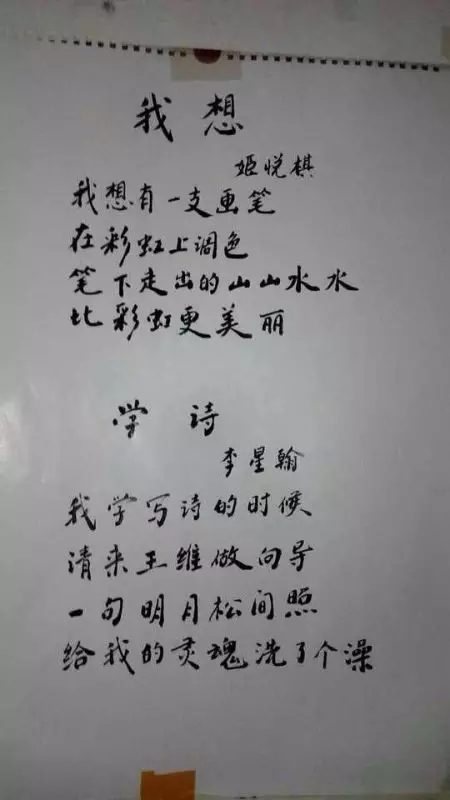 我想
姬悦棋
我想有一支画笔
在彩虹上调色
笔下走出的山山水水
比彩虹更美丽
学诗
李星翰
我学写诗的时候
请来王维做向导
一句明月松间照
给我的灵魂洗了个澡